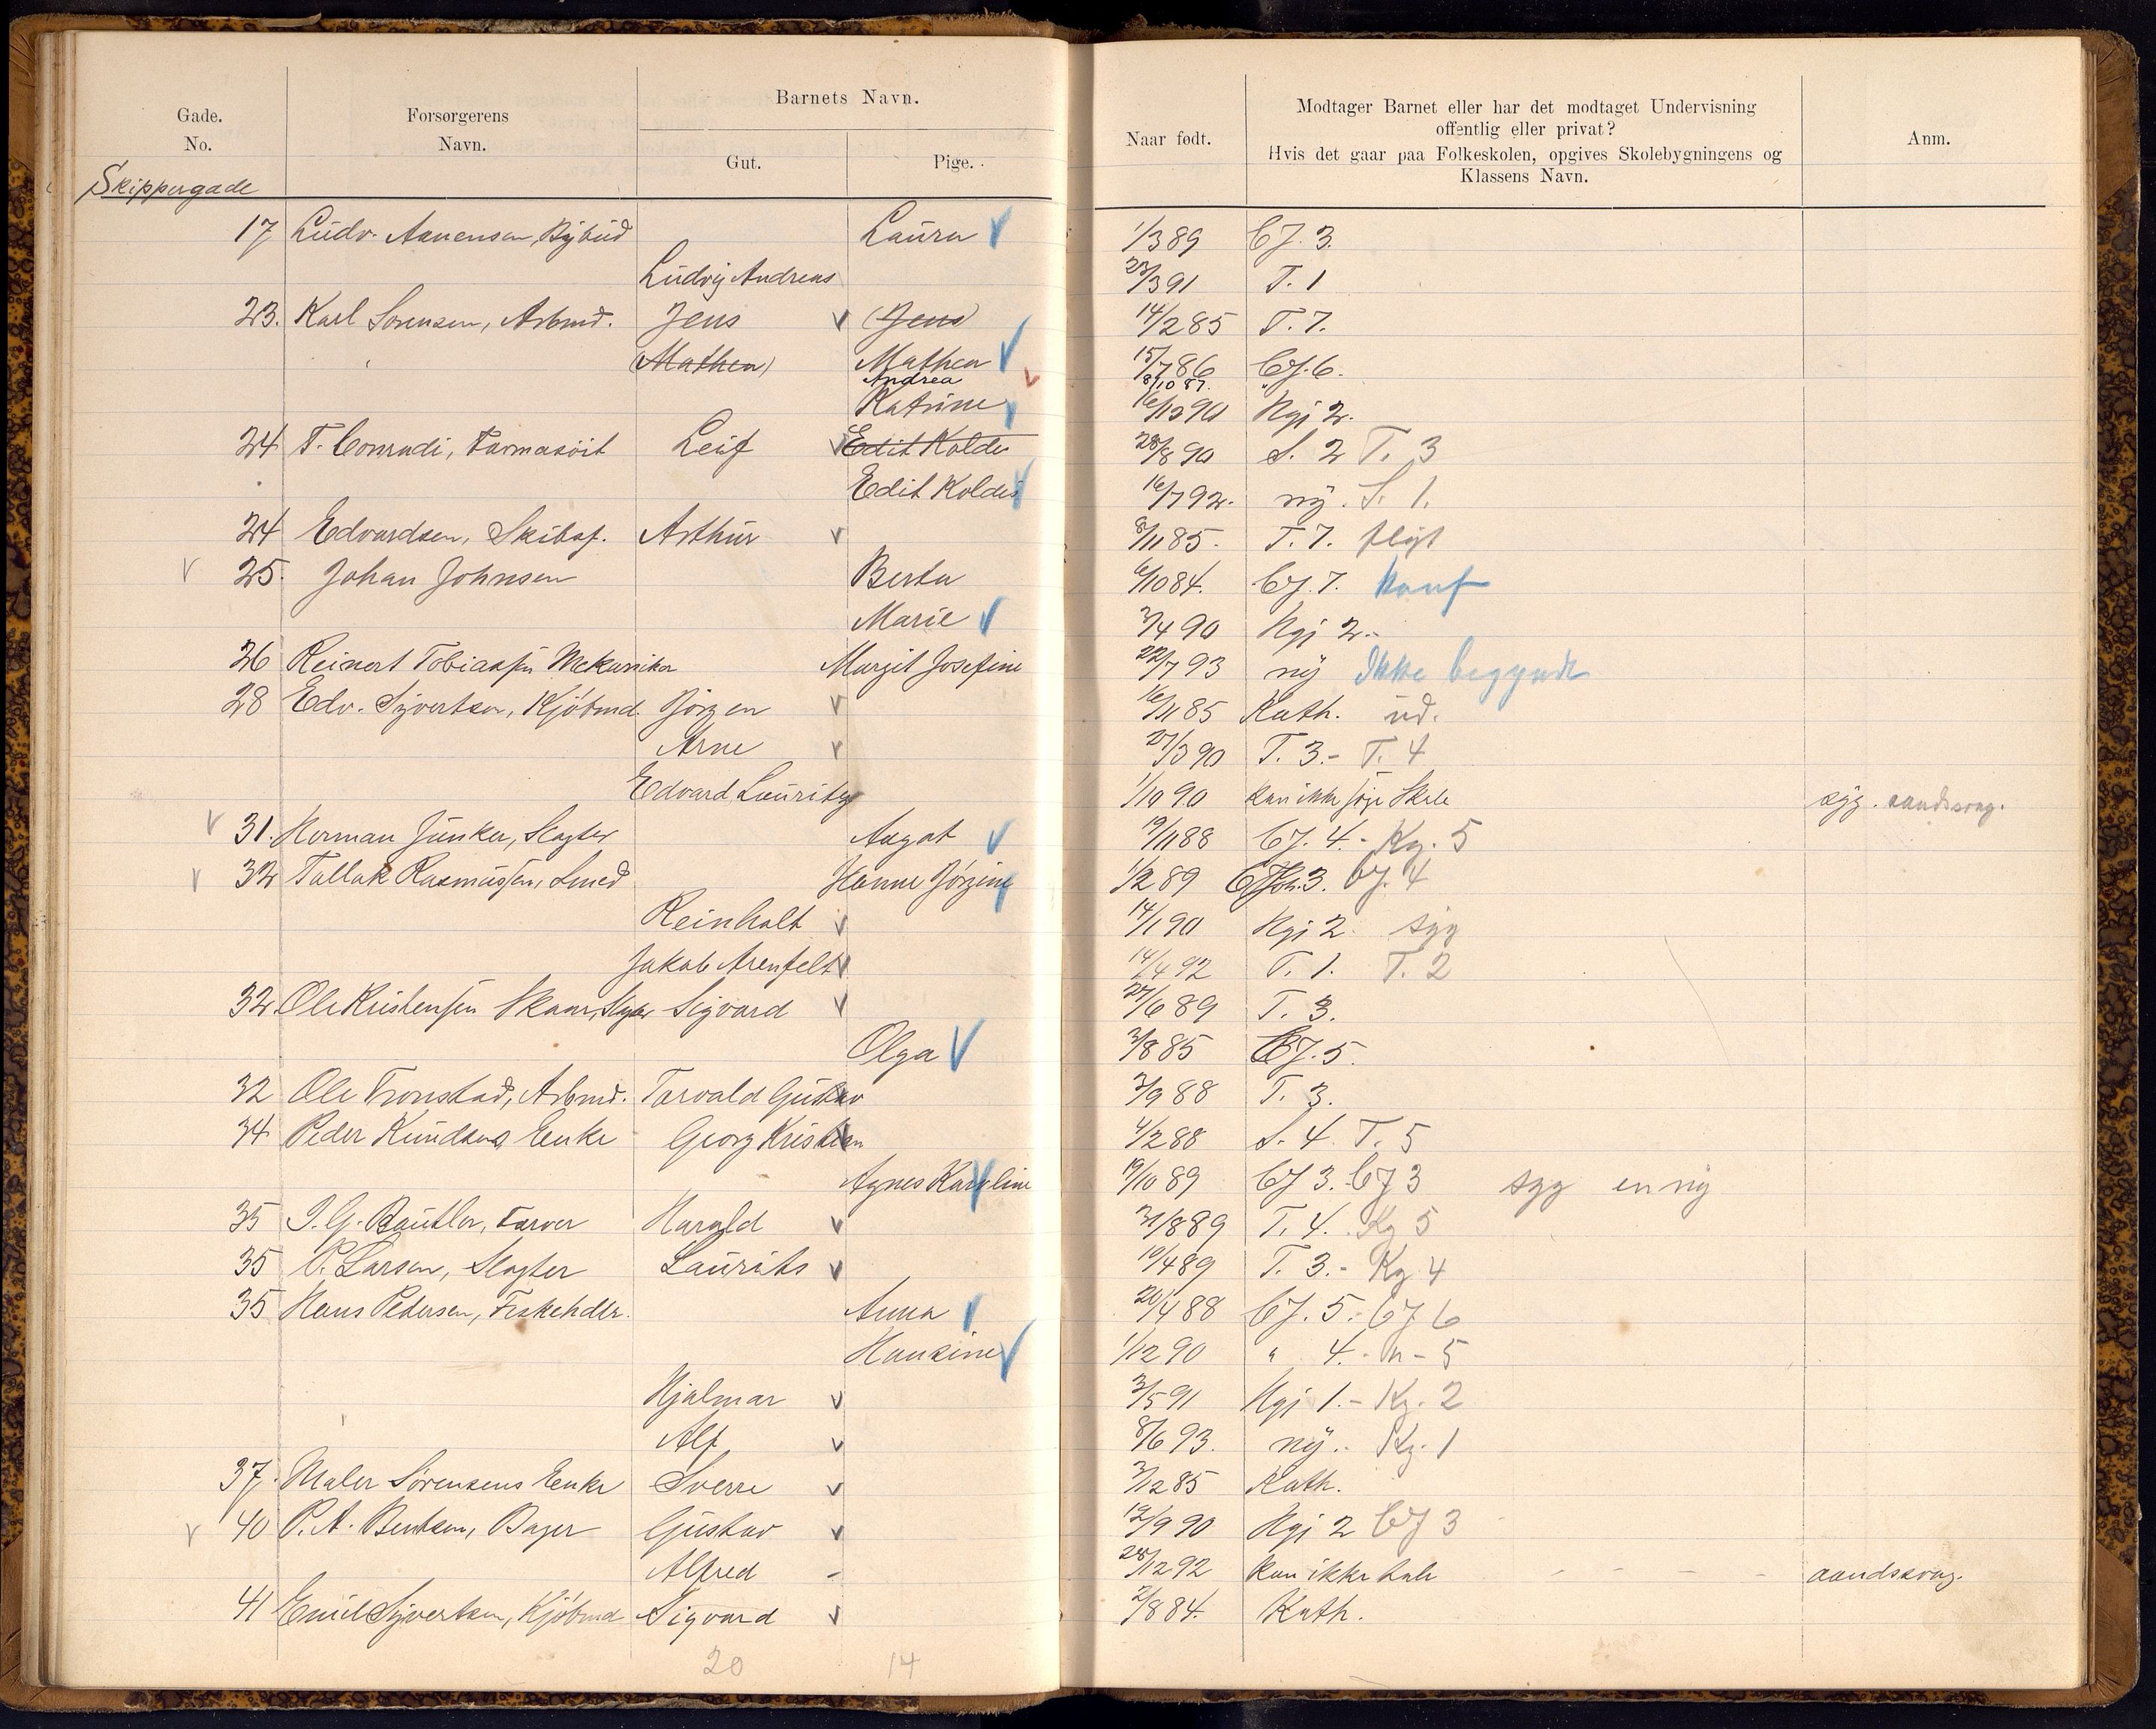 Gade. No. Forsørgerens Navn. Barnets Navn. Gut. Pige. Naar født. Modtager Barnet eller har det modtaget Undervisning offentlig eller privat? Hvis det gaar paa Folkeskolen, opgives Skolebygningens og Klassens Navn. Anm.
Skippergade
17 Ludv. Aanensen, Bybud Laura 1/3 89 CJ. 3.
Ludvig Andreas /3 91 T. 1
23. Karl Sørensen, Arbmd. Jens (Jens) 14/2 85 T. 7.
(Mathea) Mathea 15/7 86 CJ. 6.
Andrea 8/10 87. "
Katrine 16/12 90 Ngj 2.
24 T. Conradi, Farmasöit Leif Edit Koldes 28/8 90 S. 2 T. 3
Edit Koldes 16/7 92. ny. S. 1.
24 Edvardsen, Skibsf. Arthur 8/11 85. T. 7. fløjt
25. Johan Johnsen Berta 6/10 84. CJ. 7. konf
Marie 3/4 90 Ngj 2.
26 Reinert Tobiassen Mekanike Margit Josefine 22/7 93 ny Ikke begyndt
28 Edv. Syvertsen, Kjöbmd. Jörgen 16/11 85 Kath. ud.
Arne 27/3 90 T. 3.- T. 4
Edvard Lauritz 1/10 90 kan ikke søge Skole syg. aandssvag.
31. Herman Junker, Slagter Aagot 19/11 88 CJ. 4.- Kg. 5
32 Tallak Rasmussen, Smed Hanne Jörgine 1/2 89 3. CJ. 4
Reinholt 14/1 90 Ngj 2. syg
Jakob Arenfelt 14/4 92 T. 1. T. 2
32 Ole Kristensen Skaar, Sigvard 27/6 89 T. 3.
Olga 3/8 85 CJ. 5.
32 Ole Tronstad, Arbmd. Torvald Gustav 3/9 88 T. 3.
34 Peder Knudsens Enke Georg Kristian 4/2 88 S. 4. T. 5
Agnes Karoline 19/10 89 CJ 3. CJ 3 syg en ny
35 J. G. Bautler, Farver Harald 31/8 89 T. 4. Kg 5
35 P. Larsen, Slagter Laurits 19/4 89 T. 3.- Kg. 4
35 Hans Pedersen, Fiskehdlr. Anna 20/4 88 CJ. 5.- CJ 6
Hansine 1/12 90 " 4.- " - 5
Hjalmar 3/5 91 Ngj 1.- Kg. 2
Alf 8/6 93. ny.. Kg. 1
37. Maler Sörensens Enke Sverre 3/12 85 Kath.
40 P. A. Bentsen, Bager Gustav 12/9 90 Ngj 2 CJ 3
Alfred - 28/12 92 kan ikke tale - - - - aandssvag.
41 Emil Syvertsen, Kjöbmd Sigvard 2/8 84. Kath.
20 14